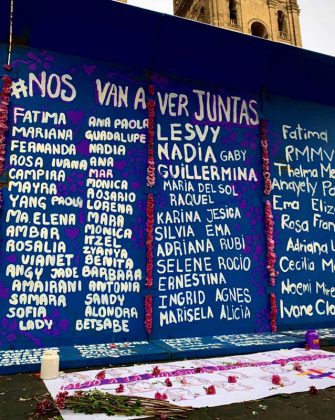 #NOS VAN A VER JUNTAS
FATIMA ANA PAOLA
MARIANA GUADALUPE
FERNANDA NADIA
ROSA IVANA ANA
CAMPIRA MAR
MAYRA MONICA
YANG PAOLA ROSARIO
MA.ELENA LORENA
AMBAR MARA
ROSALIA MONICA
VIANET ITZEL
ANGY JADE ZYANYA
AMAIRANI BENITA
SAMARA BARBARA
SOFIA ANTONIA
LADY SANDY
ALONDRA
BETSABE
LESVY
NADIA GABY
GUILLERMINA
MARIA DEL SOL
RAQUEL
KARINA JESICA
SILVIA EMA
ADRIANA RUBI
SELENE ROCIO
ERNESTINA
INGRID AGNES
MARISELA ALICIA
Fatima
RMMV
Thelma Me
Anayely
Ema Eliz
Rosa Fran
Adriana
Cecilia M
Noemi
Ivone Cla